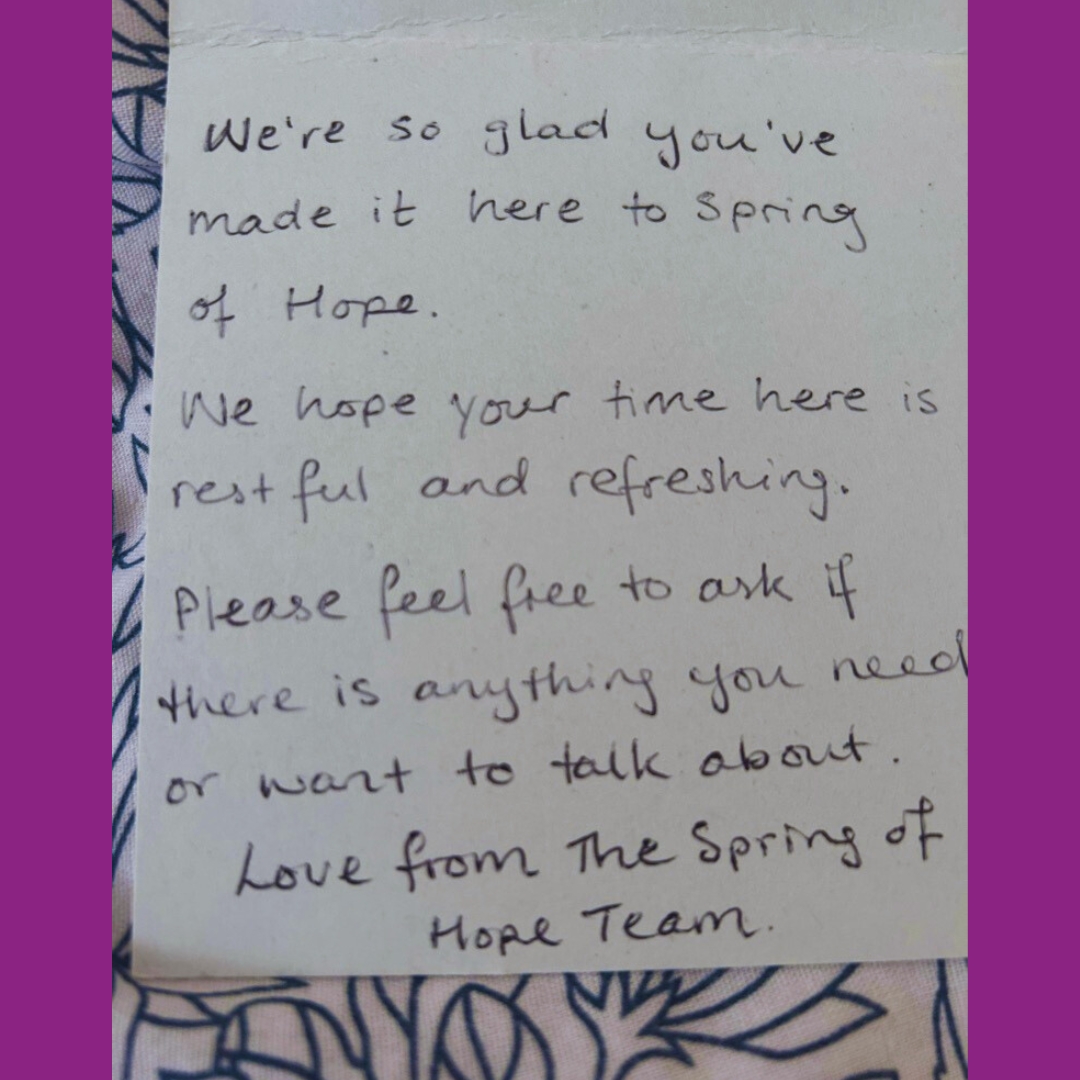 We're so glad you've
made it here to Spring
of Hope.
We hope your time here is
restful and refreshing.
Please feel free to ask if
there is anything you need
or want to talk about.
Love from The Spring of
Hope Team.